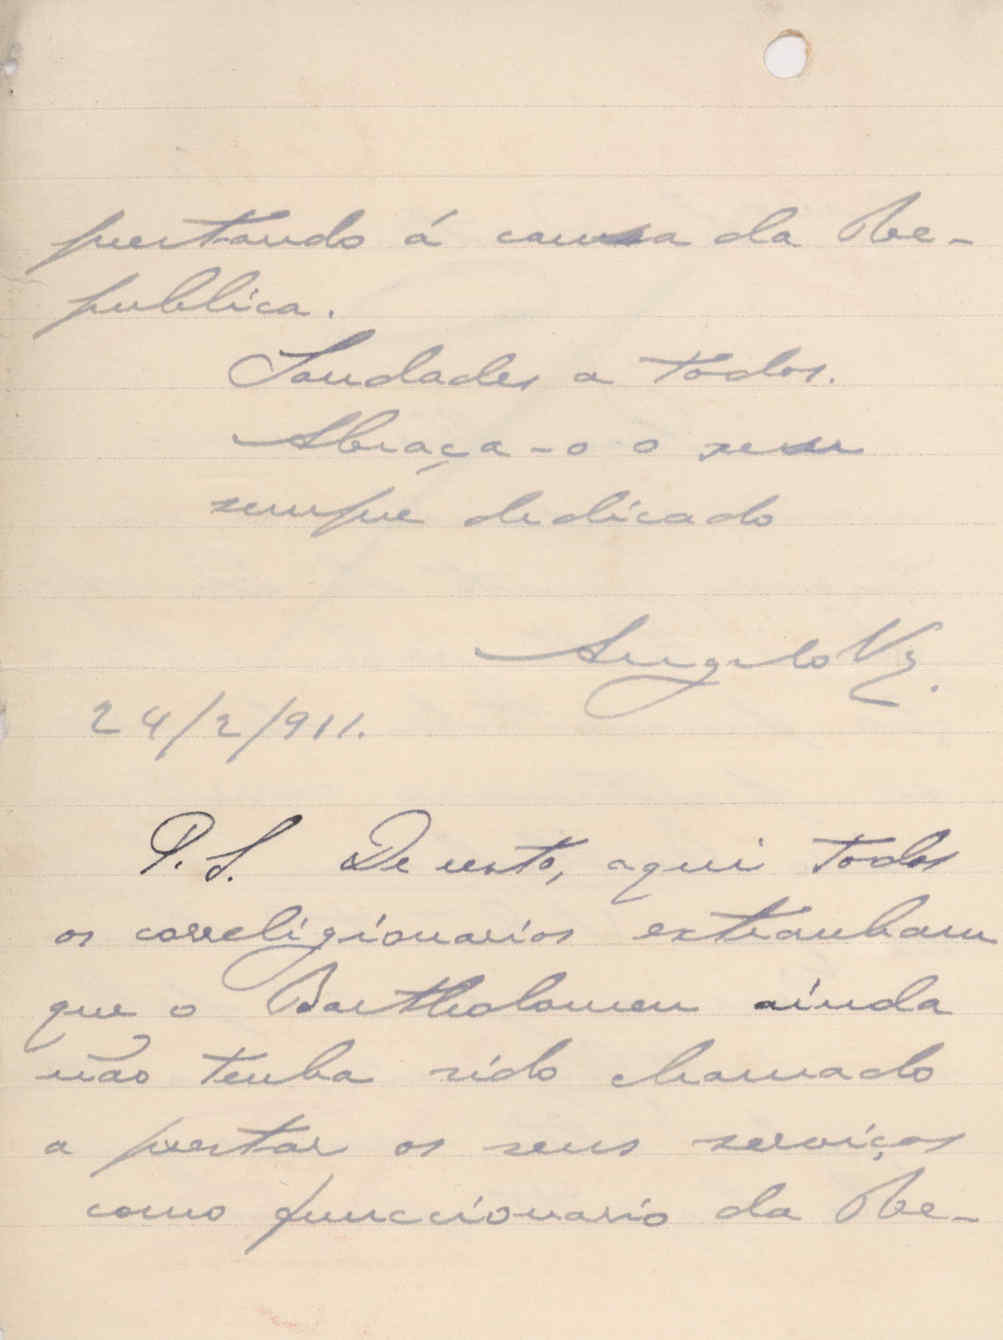 prestando á causa da Re-
publica.
Saudades a todos.
Abraça-o o seu
sempre dedicado
Angelo Vz.
24/2/911.
P.S. De resto, aqui todos
os correligionarios extranham
que o Bartholomeu ainda
não tenha sido chamado
a prestar os seus serviços
como funccionario da Re-